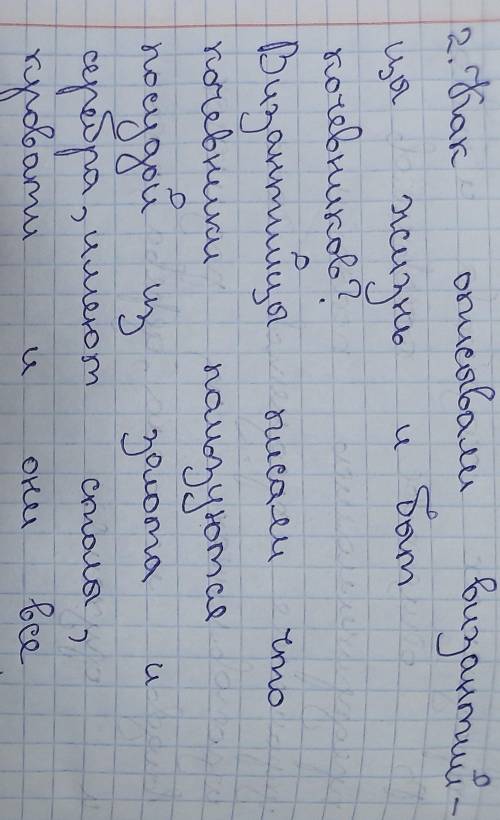 2. Как описывали византий-
цы жизнь и быт
кочевников?
Византийцы писали что
кочевники пользуются
посудой из золота и
серебра, имеют столы,
кровати и они все